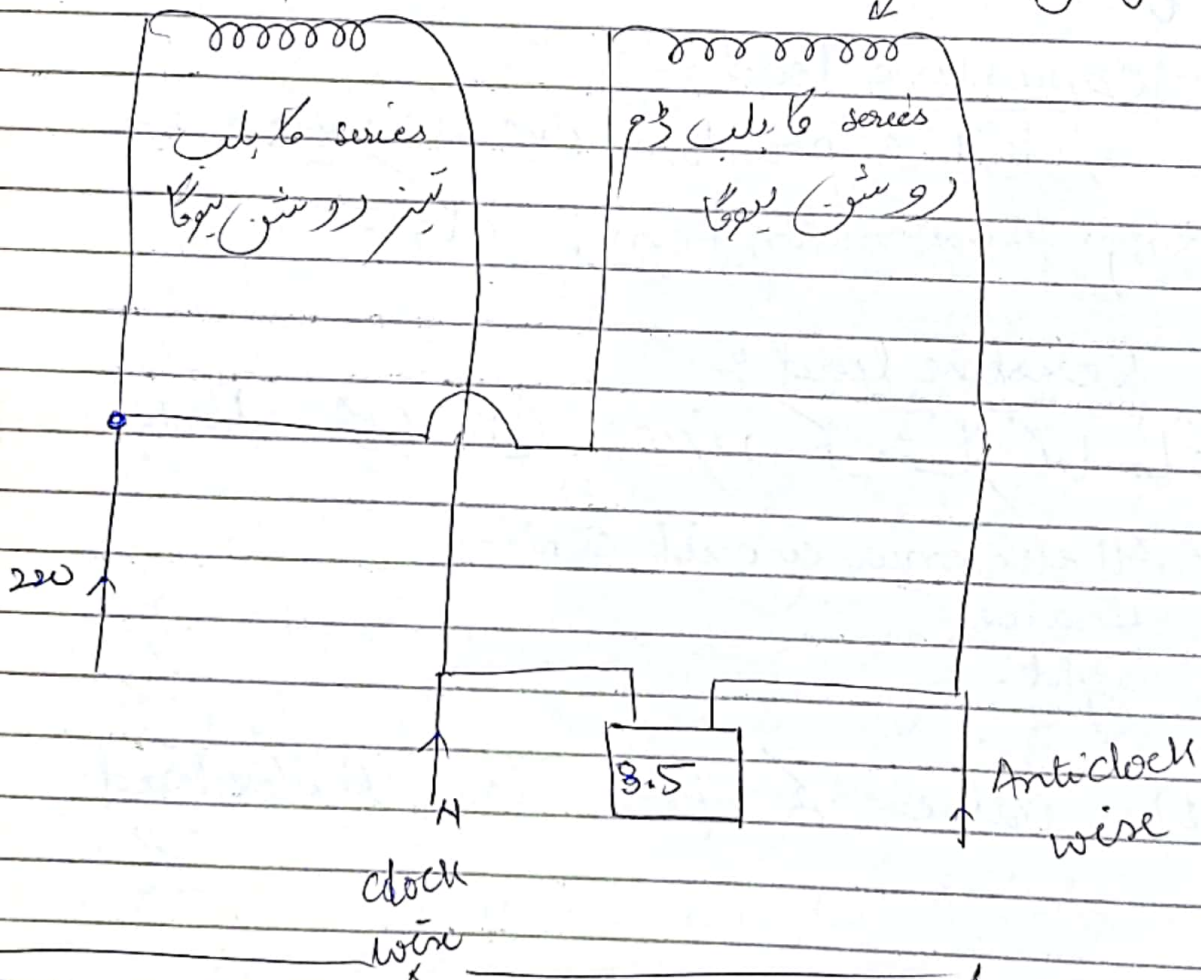 series کا بلب
تیز روشن ہوگا
series کا بلب ڈم
روشن ہوگا
220
N
3.5
Anticlock
wise
clock
wise